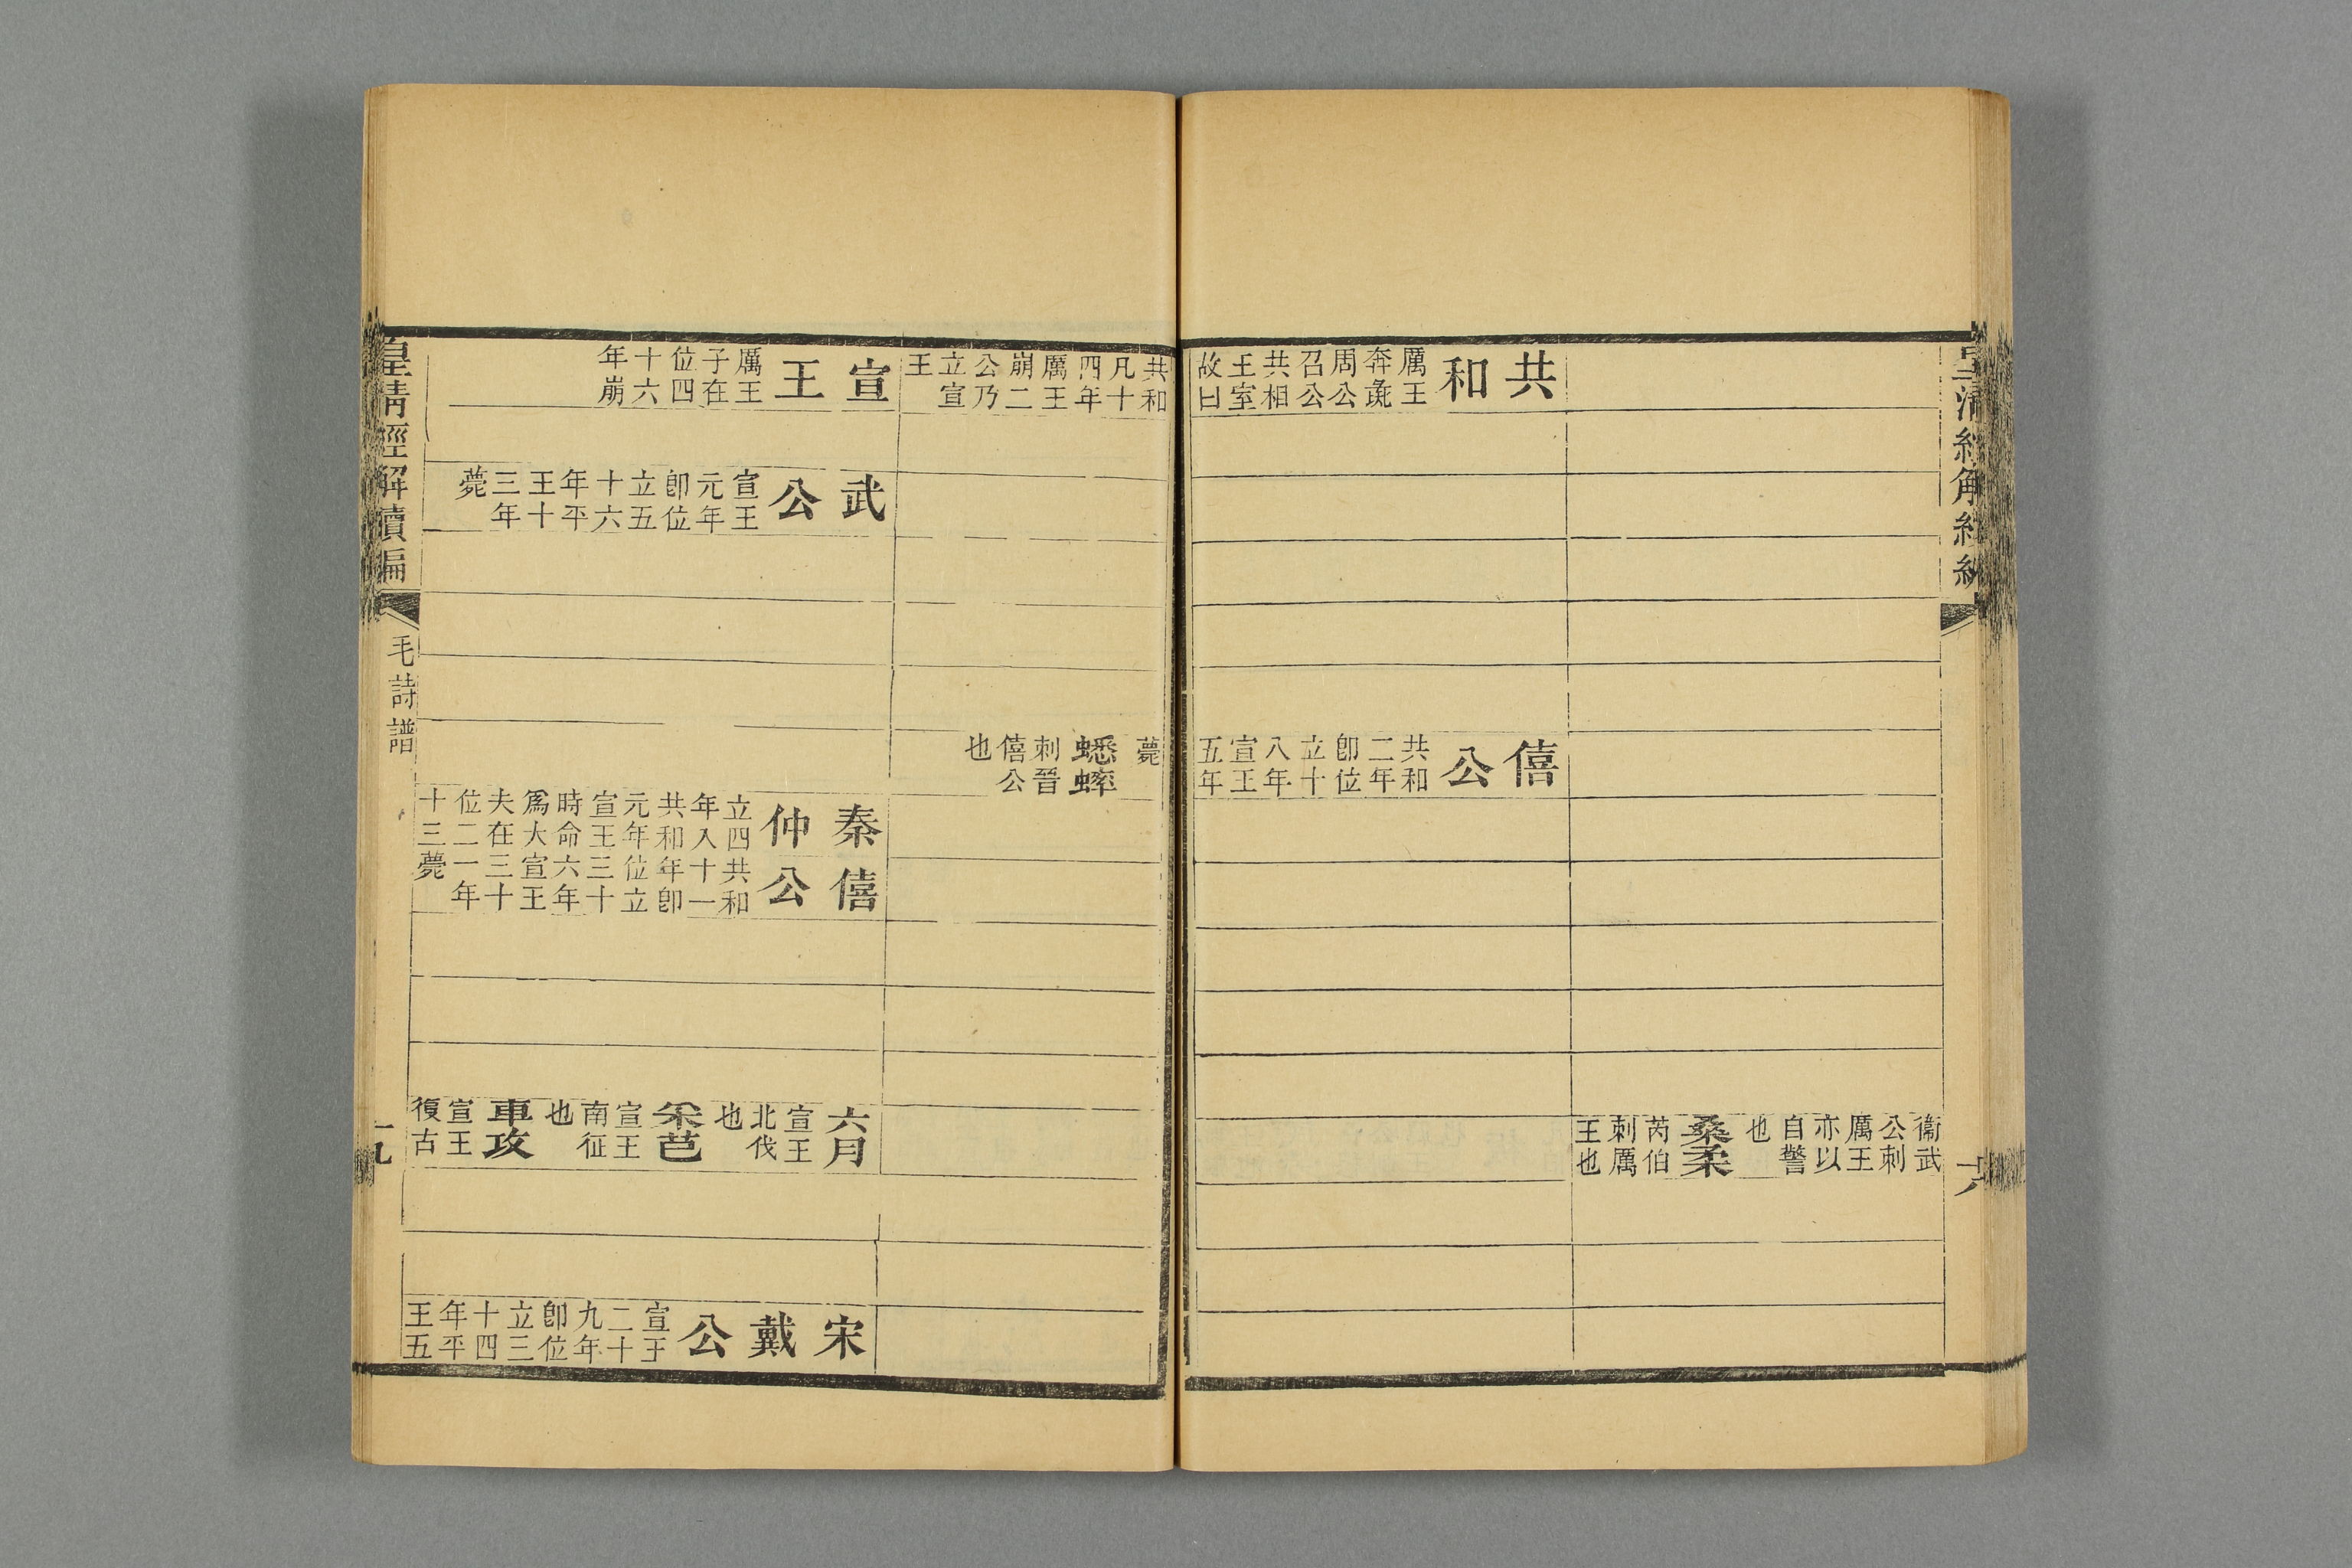 十八
衞武公刺厲王亦以自警也
桑柔
芮伯刺厲王也
共和
厲王奔彘周公召公共相王室故曰
僖公
共和二年卽位立十八年宣王五年
共和凡十四年厲王崩二公乃立宣王
薨
蟋蟀
刺晉僖公也
宣王
厲王子在位四十六年崩
武公
宣王元年卽位立五十六年平王十三年薨
秦仲
立四年入共和元年宣王時命爲大夫在位二十三
僖公
共和十一年卽位立三十六年宣王三十一年薨
六月
宣王北伐也
采芑
宣王南征也
車攻
宣王復古
宋戴公
宣王二十九年卽位立三十四年平王五
皇清經解續編
毛詩譜
十九